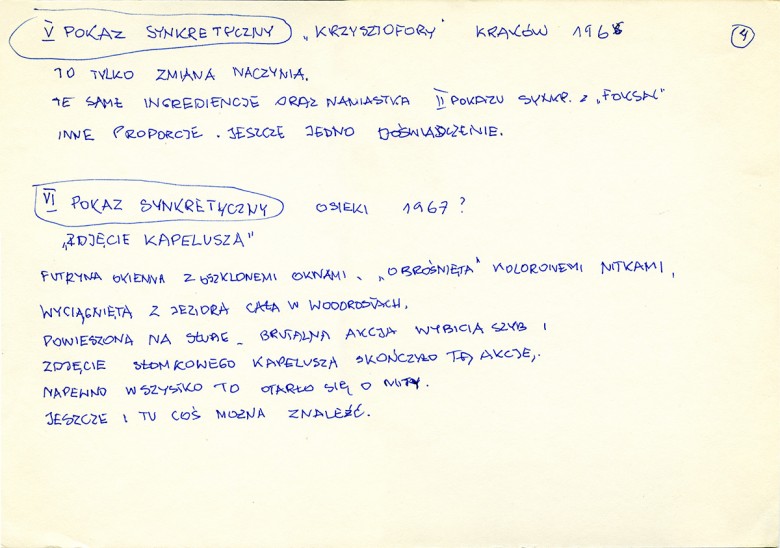 V POKAZ SYNKRETYCZNY „KRZYSZTOFORY” KRAKÓW 1966 4
TO TYLKO ZMIANA NACZYNIA.
TE SAME INGREDIENCJE ORAZ NAMIASTKA II POKAZU SYNKR. Z „FOKSAL”
INNE PROPORCJE. JESZCZE JEDNO DOŚWIADCZENIE.
VI POKAZ SYNKRETYCZNY OSIEKI 1967?
„ZDJĘCIE KAPELUSZA”
FUTRYNA OKIENNA Z OSZKLONEMI OKNAMI. „OBROŚNIĘTA” KOLOROWEMI NITKAMI,
WYCIĄGNIĘTA Z JEZIORA CAŁA W WODOROSTACH.
POWIESZONA NA SŁUPIE – BRUTALNA AKCJA WYBICIA SZYB I
ZDJĘCIE SŁOMKOWEGO KAPELUSZA SKOŃCZYŁO TĘ AKCJĘ.
NAPEWNO WSZYSTKO TO OTARŁO SIĘ O MITY.
JESZCZE I TU COŚ MOŻNA ZNALEŹĆ.